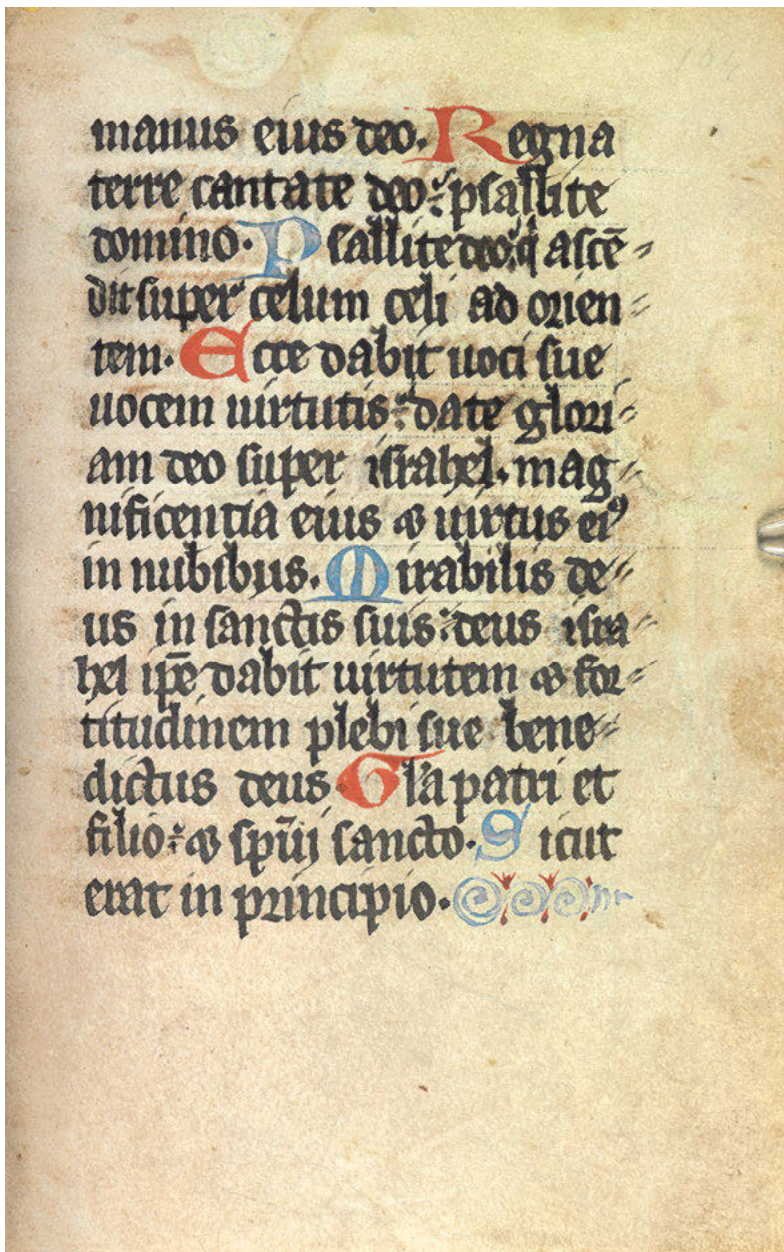 manus eius deo. Regna
terre cantate deo: psallite
domino. Psallite deo: q̄ ascē
dit super celum celi ad orien
tem. Ecce dabit uoci sue
uocem uirtutis: date glori
am deo super israhel. mag
nificentia eius ⁊ uirtus ei⁹
in nubibus. Mirabilis de
us in sanctis suis: deus isra
hel ip̄e dabit uirtutem ⁊ for
titudinem plebi sue bene
dictus deus Gl'a patri et
filio: ⁊ sp̄ui sancto. Sicut
erat in principio.